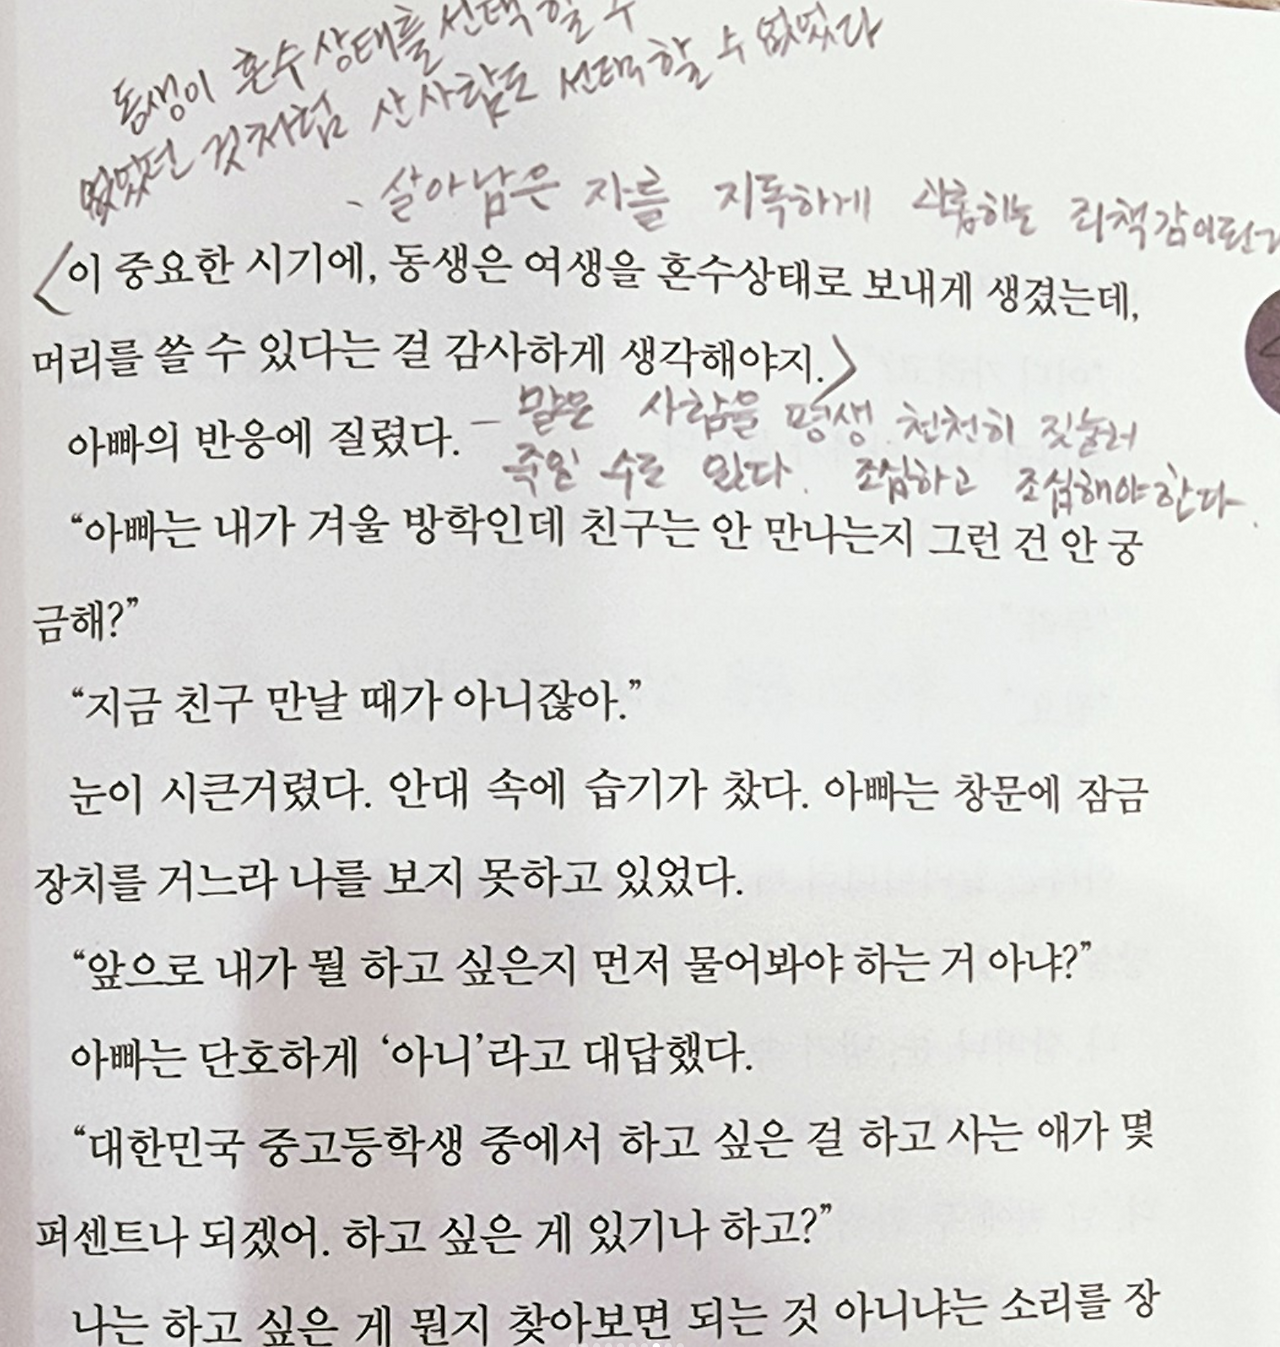 동생이 혼수상태를 선택할 수
없었던 것처럼 산 사람도 선택할 수 없었다
- 살아남은 자를 지독하게 괴롭히는 죄책감이란
〈이 중요한 시기에, 동생은 여생을 혼수상태로 보내게 생겼는데,
머리를 쓸 수 있다는 걸 감사하게 생각해야지.〉
아빠의 반응에 질렸다.
- 말은 사람을 평생 천천히 짓눌러
죽일 수도 있다. 조심하고 조심해야한다.
“아빠는 내가 겨울 방학인데 친구는 안 만나는지 그런 건 안 궁
금해?”
“지금 친구 만날 때가 아니잖아.”
눈이 시큰거렸다. 안대 속에 습기가 찼다. 아빠는 창문에 잠금
장치를 거느라 나를 보지 못하고 있었다.
“앞으로 내가 뭘 하고 싶은지 먼저 물어봐야 하는 거 아냐?”
아빠는 단호하게 ‘아니’라고 대답했다.
“대한민국 중고등학생 중에서 하고 싶은 걸 하고 사는 애가 몇
퍼센트나 되겠어. 하고 싶은 게 있기나 하고?”
나는 하고 싶은 게 뭔지 찾아보면 되는 것 아니냐는 소리를 장